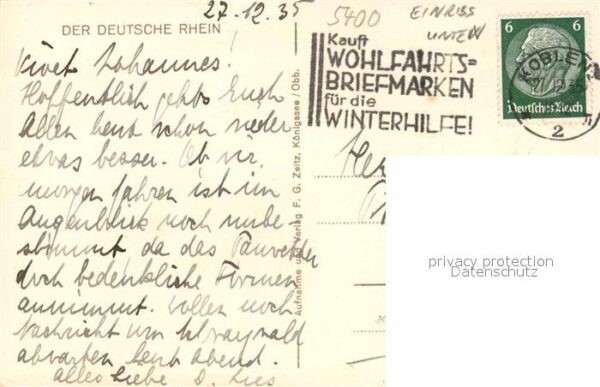 27.12.35
5400
EINRISS
UNTEN
DER DEUTSCHE RHEIN
Kauft
WOHLFAHRTS=
BRIEFMARKEN
für die
WINTERHILFE!
6 6
Deutsches Reich
KOBLENZ
2
Johannes!
Hoffentlich gehts Euch
Allen heut schon wieder
etwas besser. Ob wir
morgen fahren ist im
Augenblick noch unbe
stimmt da das Tauwetter
doch bedenkliche Formen
annimmt. Wollen noch
Nachricht
abwarten heut abend.
Alles Liebe
Aufnahme und Verlag F. G. Zeitz, Königssee/Obb.
privacy protection
Datenschutz